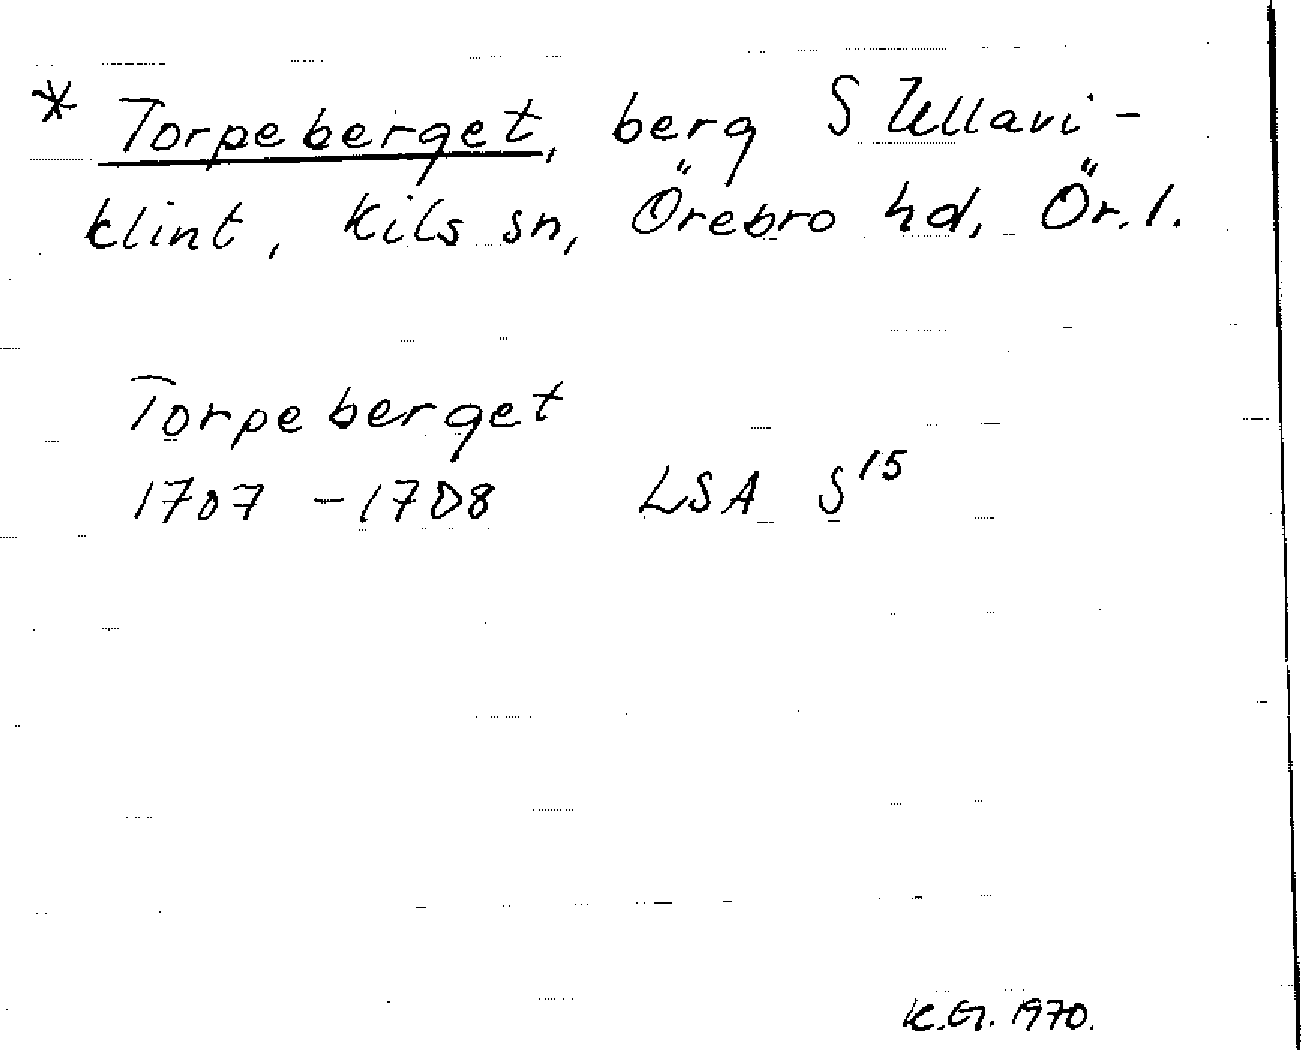 * Torpeberget, berg S Ullavi-
klint, Kils sn, Örebro hd, Ör. l.
Torpeberget
1707 - 1708 LSA S 15
K.G. 1970.